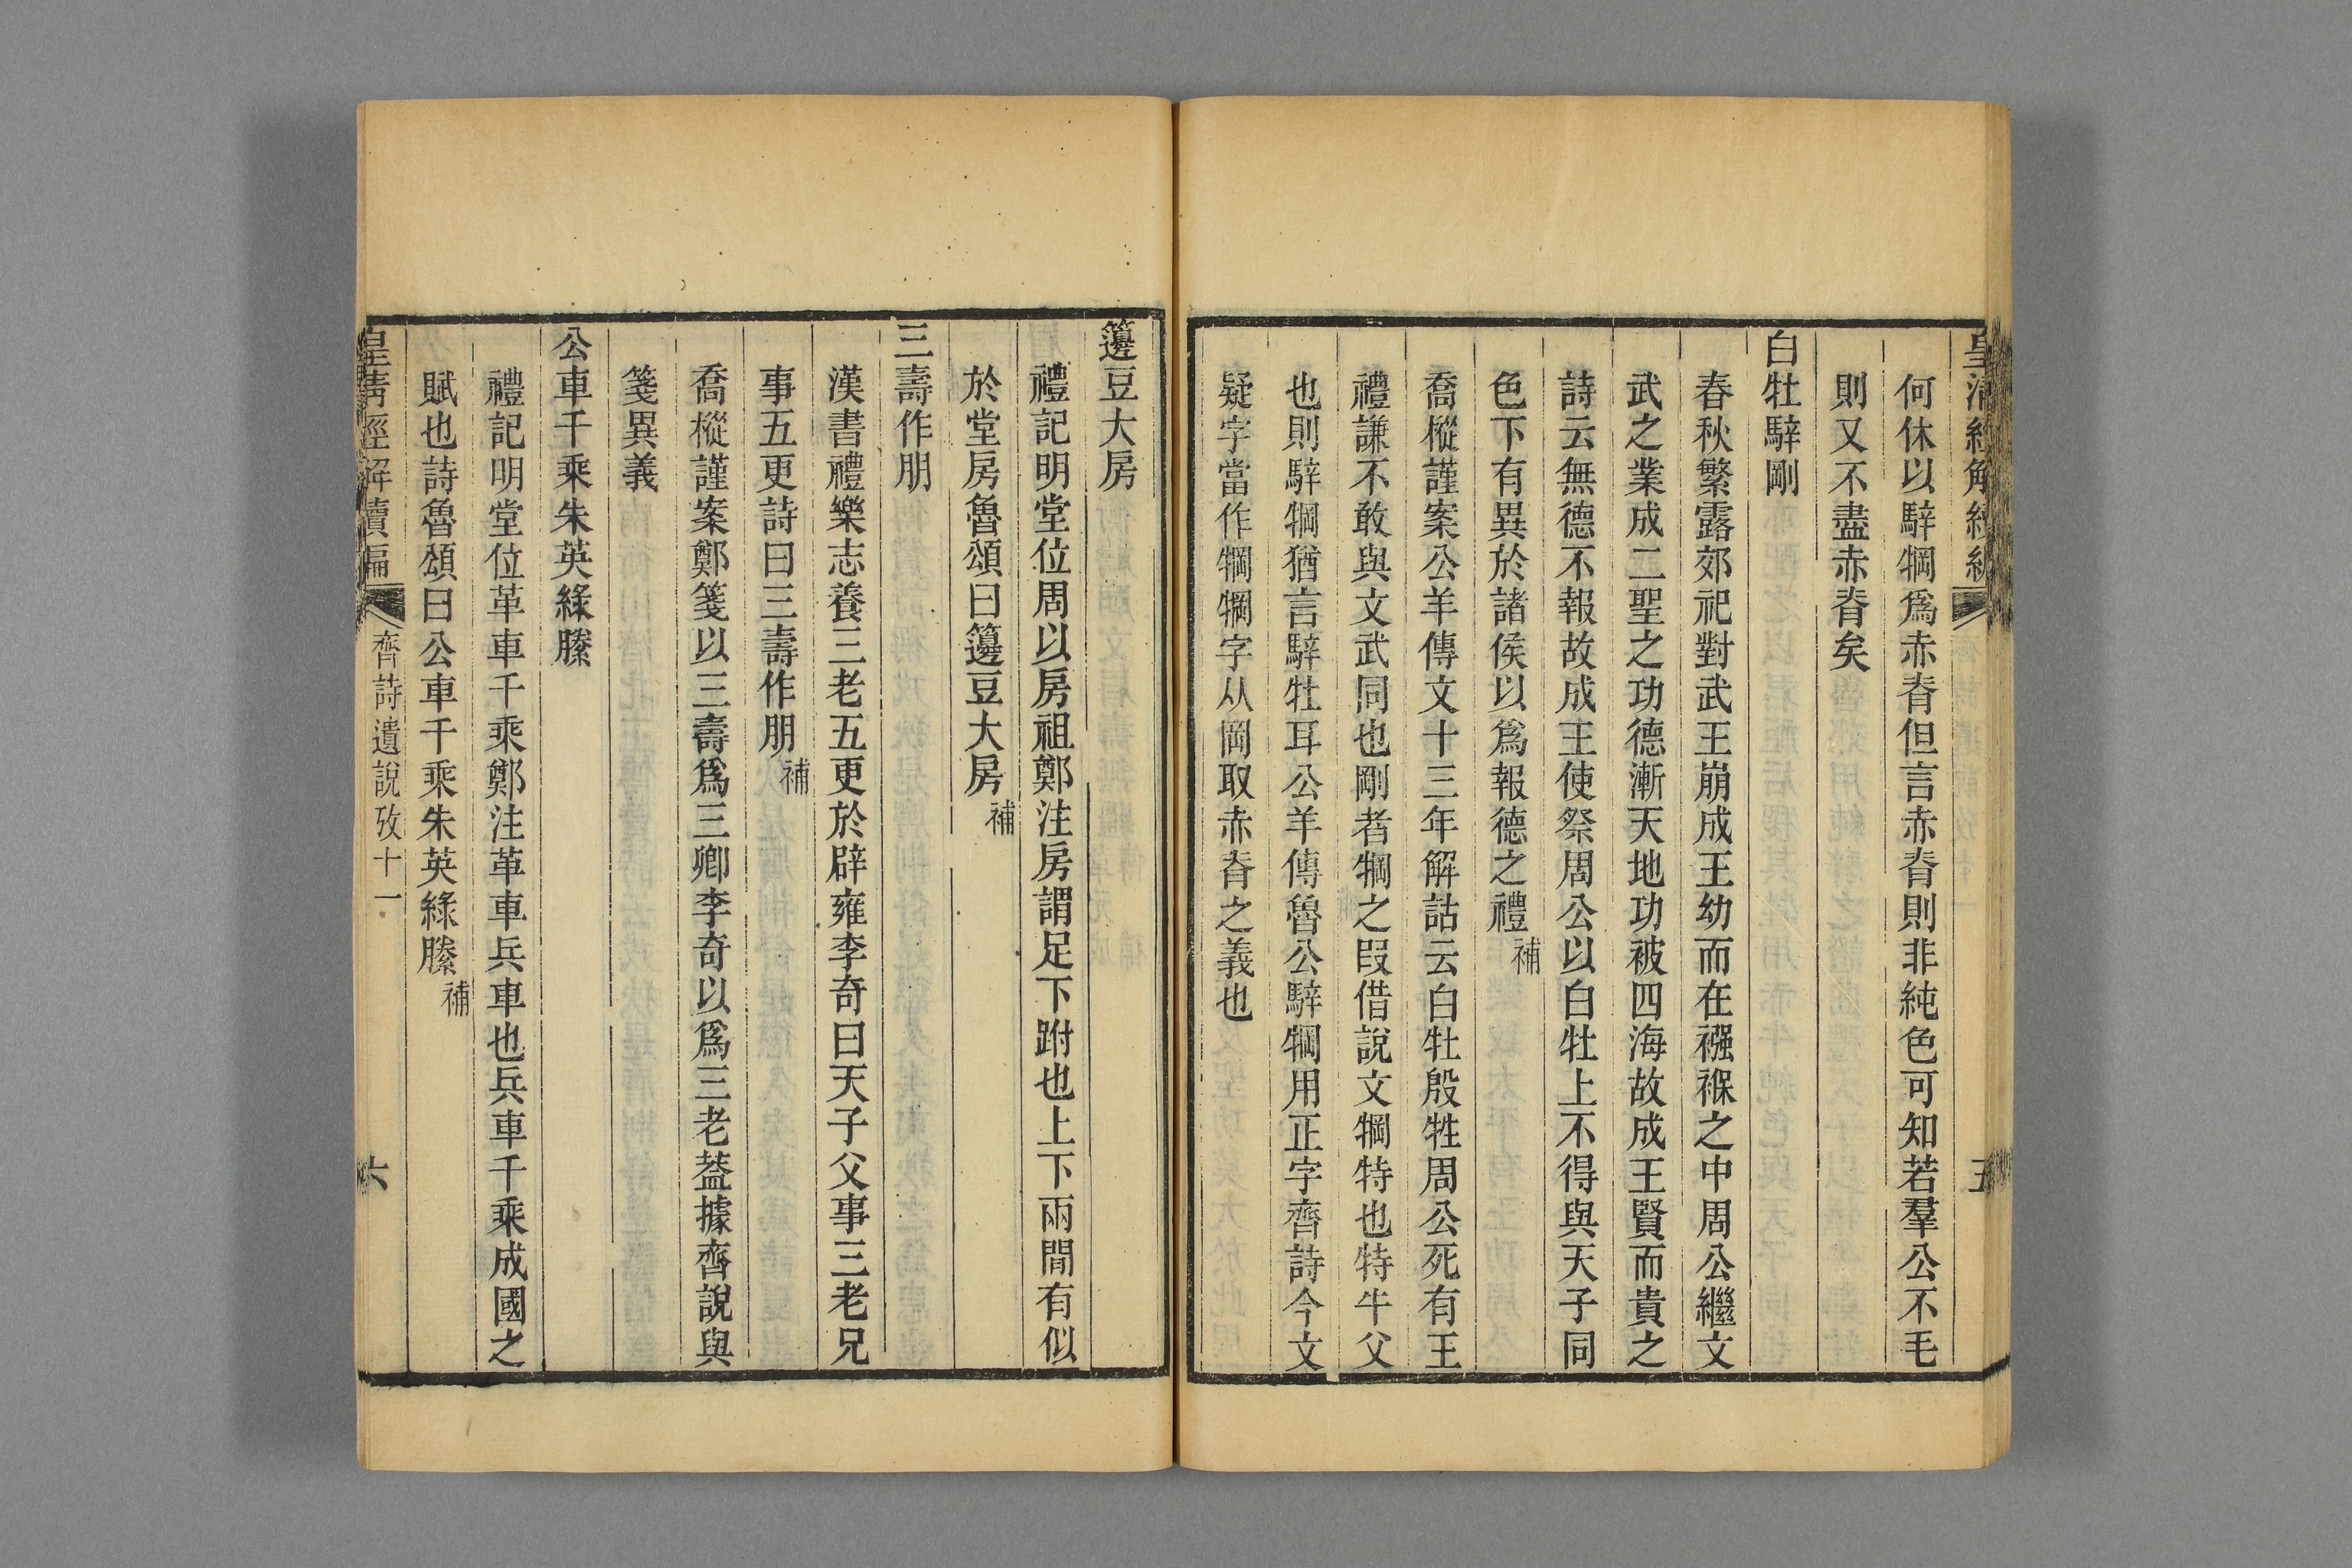 皇清經解續編
五
何休以騂犅爲赤脊但言赤脊則非純色可知若羣公不毛
則又不盡赤脊矣
白牡騂剛
春秋繁露郊祀對武王崩成王幼而在襁褓之中周公繼文
武之業成二聖之功德漸天地功被四海故成王賢而貴之
詩云無德不報故成王使祭周公以白牡上不得與天子同
色下有異於諸侯以爲報德之禮補
喬樅謹案公羊傳文十三年解詁云白牡殷牲周公死有王
禮謙不敢與文武同也剛者犅之叚借說文犅特也特牛父
也則騂犅猶言騂牡耳公羊傳魯公騂犅用正字齊詩今文
疑字當作犅犅字从岡取赤脊之義也
籩豆大房
禮記明堂位周以房祖鄭注房謂足下跗也上下兩間有似
於堂房魯頌曰籩豆大房補
三壽作朋
漢書禮樂志養三老五更於辟雍李奇曰天子父事三老兄
事五更詩曰三壽作朋補
喬樅謹案鄭箋以三壽爲三卿李奇以爲三老蓋據齊說與
箋異義
公車千乘朱英綠縢
禮記明堂位革車千乘鄭注革車兵車也兵車千乘成國之
賦也詩魯頌曰公車千乘朱英綠縢補
皇清經解續編
齊詩遺說攷十一
六